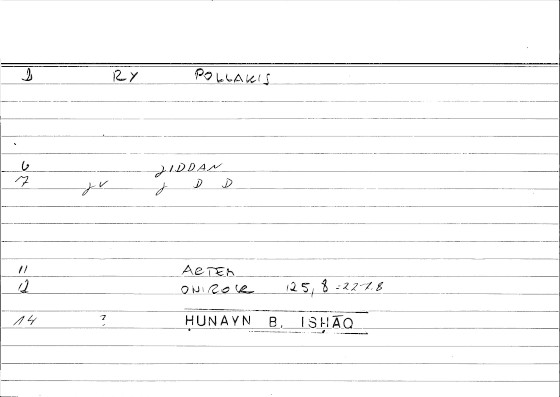 1 RY POLLAKIS
6 ǧIDDAN
7 ǧV ǧ D D
11 ARTEM
12 ONIROCR 125, 8 = 227.8
14 ? ḤUNAYN B. ISḤĀQ